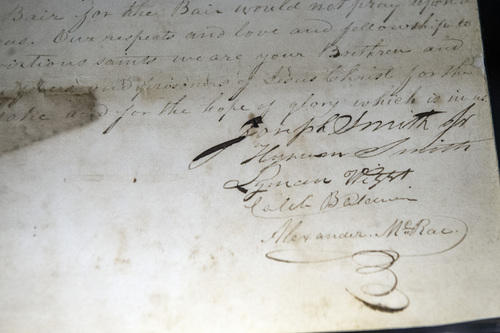 Bair for the Bair would not pray upon
us. Our respects and love and fellowship to
virtious saints we are your Brethren and
and prisoners of Jesus Christ for the
sake and for the hope of glory which is in us
Joseph Smith Jr
Hyrum Smith
Lyman Wight
Caleb Baldwin
Alexander McRae.